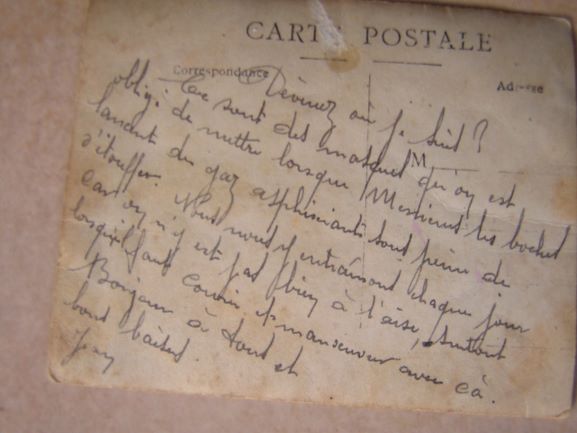 CARTE POSTALE
Correspondance
Adresse
M
Devinez où je suis ?
Ce sont des masques qu'on est
obligé de mettre lorsque Messieurs les boches
lancent du gaz asphixiants sous peine de
s'étouffer. Nous nous y entraînons chaque jour
car on n'y est pas bien à l'aise, surtout
lorsqu'il faut courir et manœuvrer avec çà.
Bonjour à tous et
bons baisers.